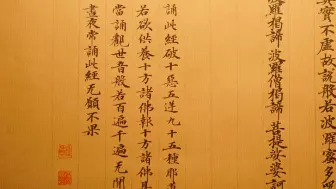 實不虛故說般若波羅蜜多
羅揭諦 波羅僧揭諦 菩提娑婆訶
誦此經破十惡五逆九十五種耶
若欲供養十方諸佛報十方諸佛
當誦觀世音般若百遍千遍无間
晝夜常誦此經无願不果